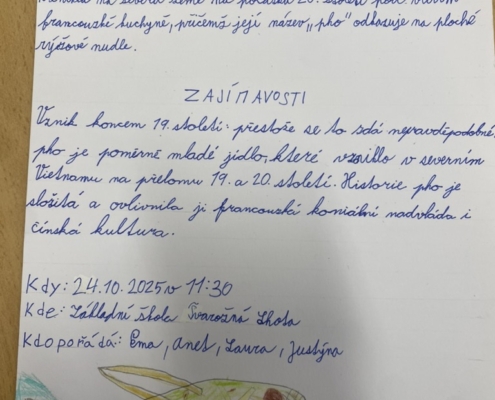 francouzské kuchyně, přičemž její název „pho" odkazuje na ploché
rýžové nudle.
ZAJÍMAVOSTI
Vznik koncem 19. století: přestože se to zdá nepravděpodobné,
pho je poměrně mladé jídlo, které vzniklo v severním
Vietnamu na přelomu 19. a 20. století. Historie pho je
složitá a ovlivnila ji francouzská koniální nadvláda i
čínská kultura.
Kdy: 24.10.2025 v 11:30
Kde: Základní škola Tvarožná Lhota
Kdo pořádá: Ema, Anet, Laura, Justýna